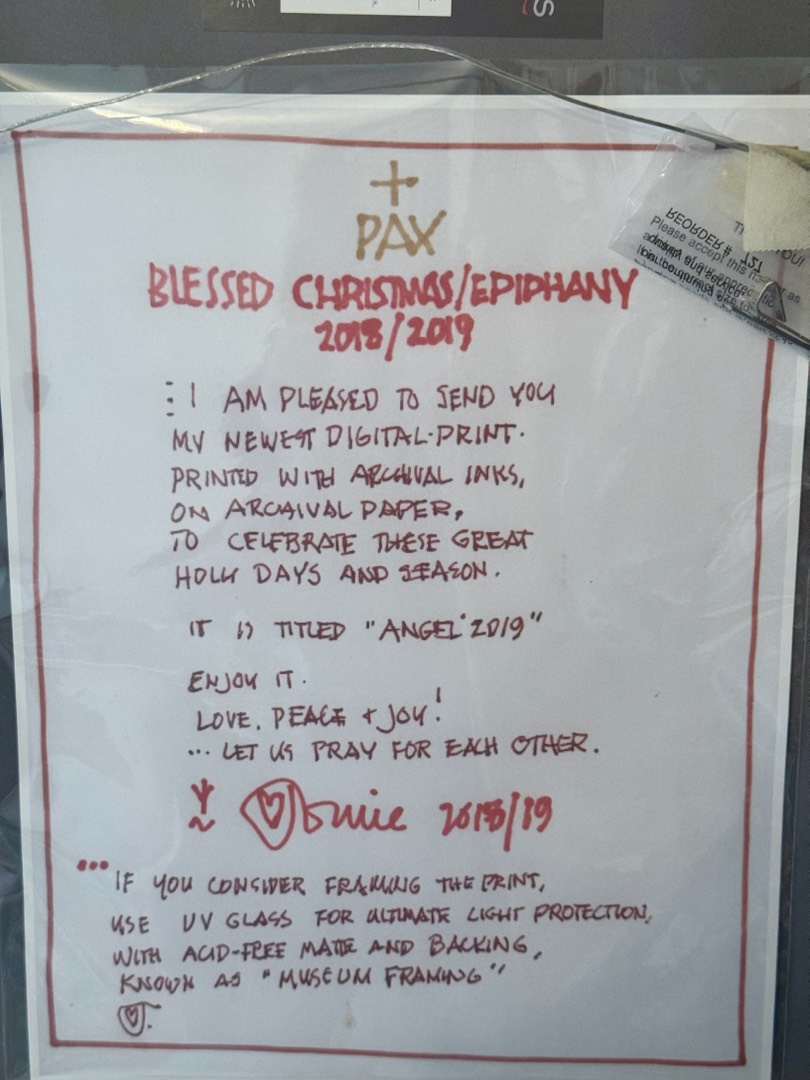 S
+
PAX
BLESSED CHRISTMAS/EPIPHANY
2018/2019
I AM PLEASED TO SEND YOU
MY NEWEST DIGITAL·PRINT.
PRINTED WITH ARCHIVAL INKS,
ON ARCHIVAL PAPER,
TO CELEBRATE THESE GREAT
HOLY DAYS AND SEASON.
IT IS TITLED "ANGEL 2019"
ENJOY IT.
LOVE, PEACE + JOY!
... LET US PRAY FOR EACH OTHER.
2018/19
... IF YOU CONSIDER FRAMING THE PRINT,
USE UV GLASS FOR ULTIMATE LIGHT PROTECTION,
WITH ACID-FREE MATTE AND BACKING,
KNOWN AS "MUSEUM FRAMING"
REORDER #
Please accept this